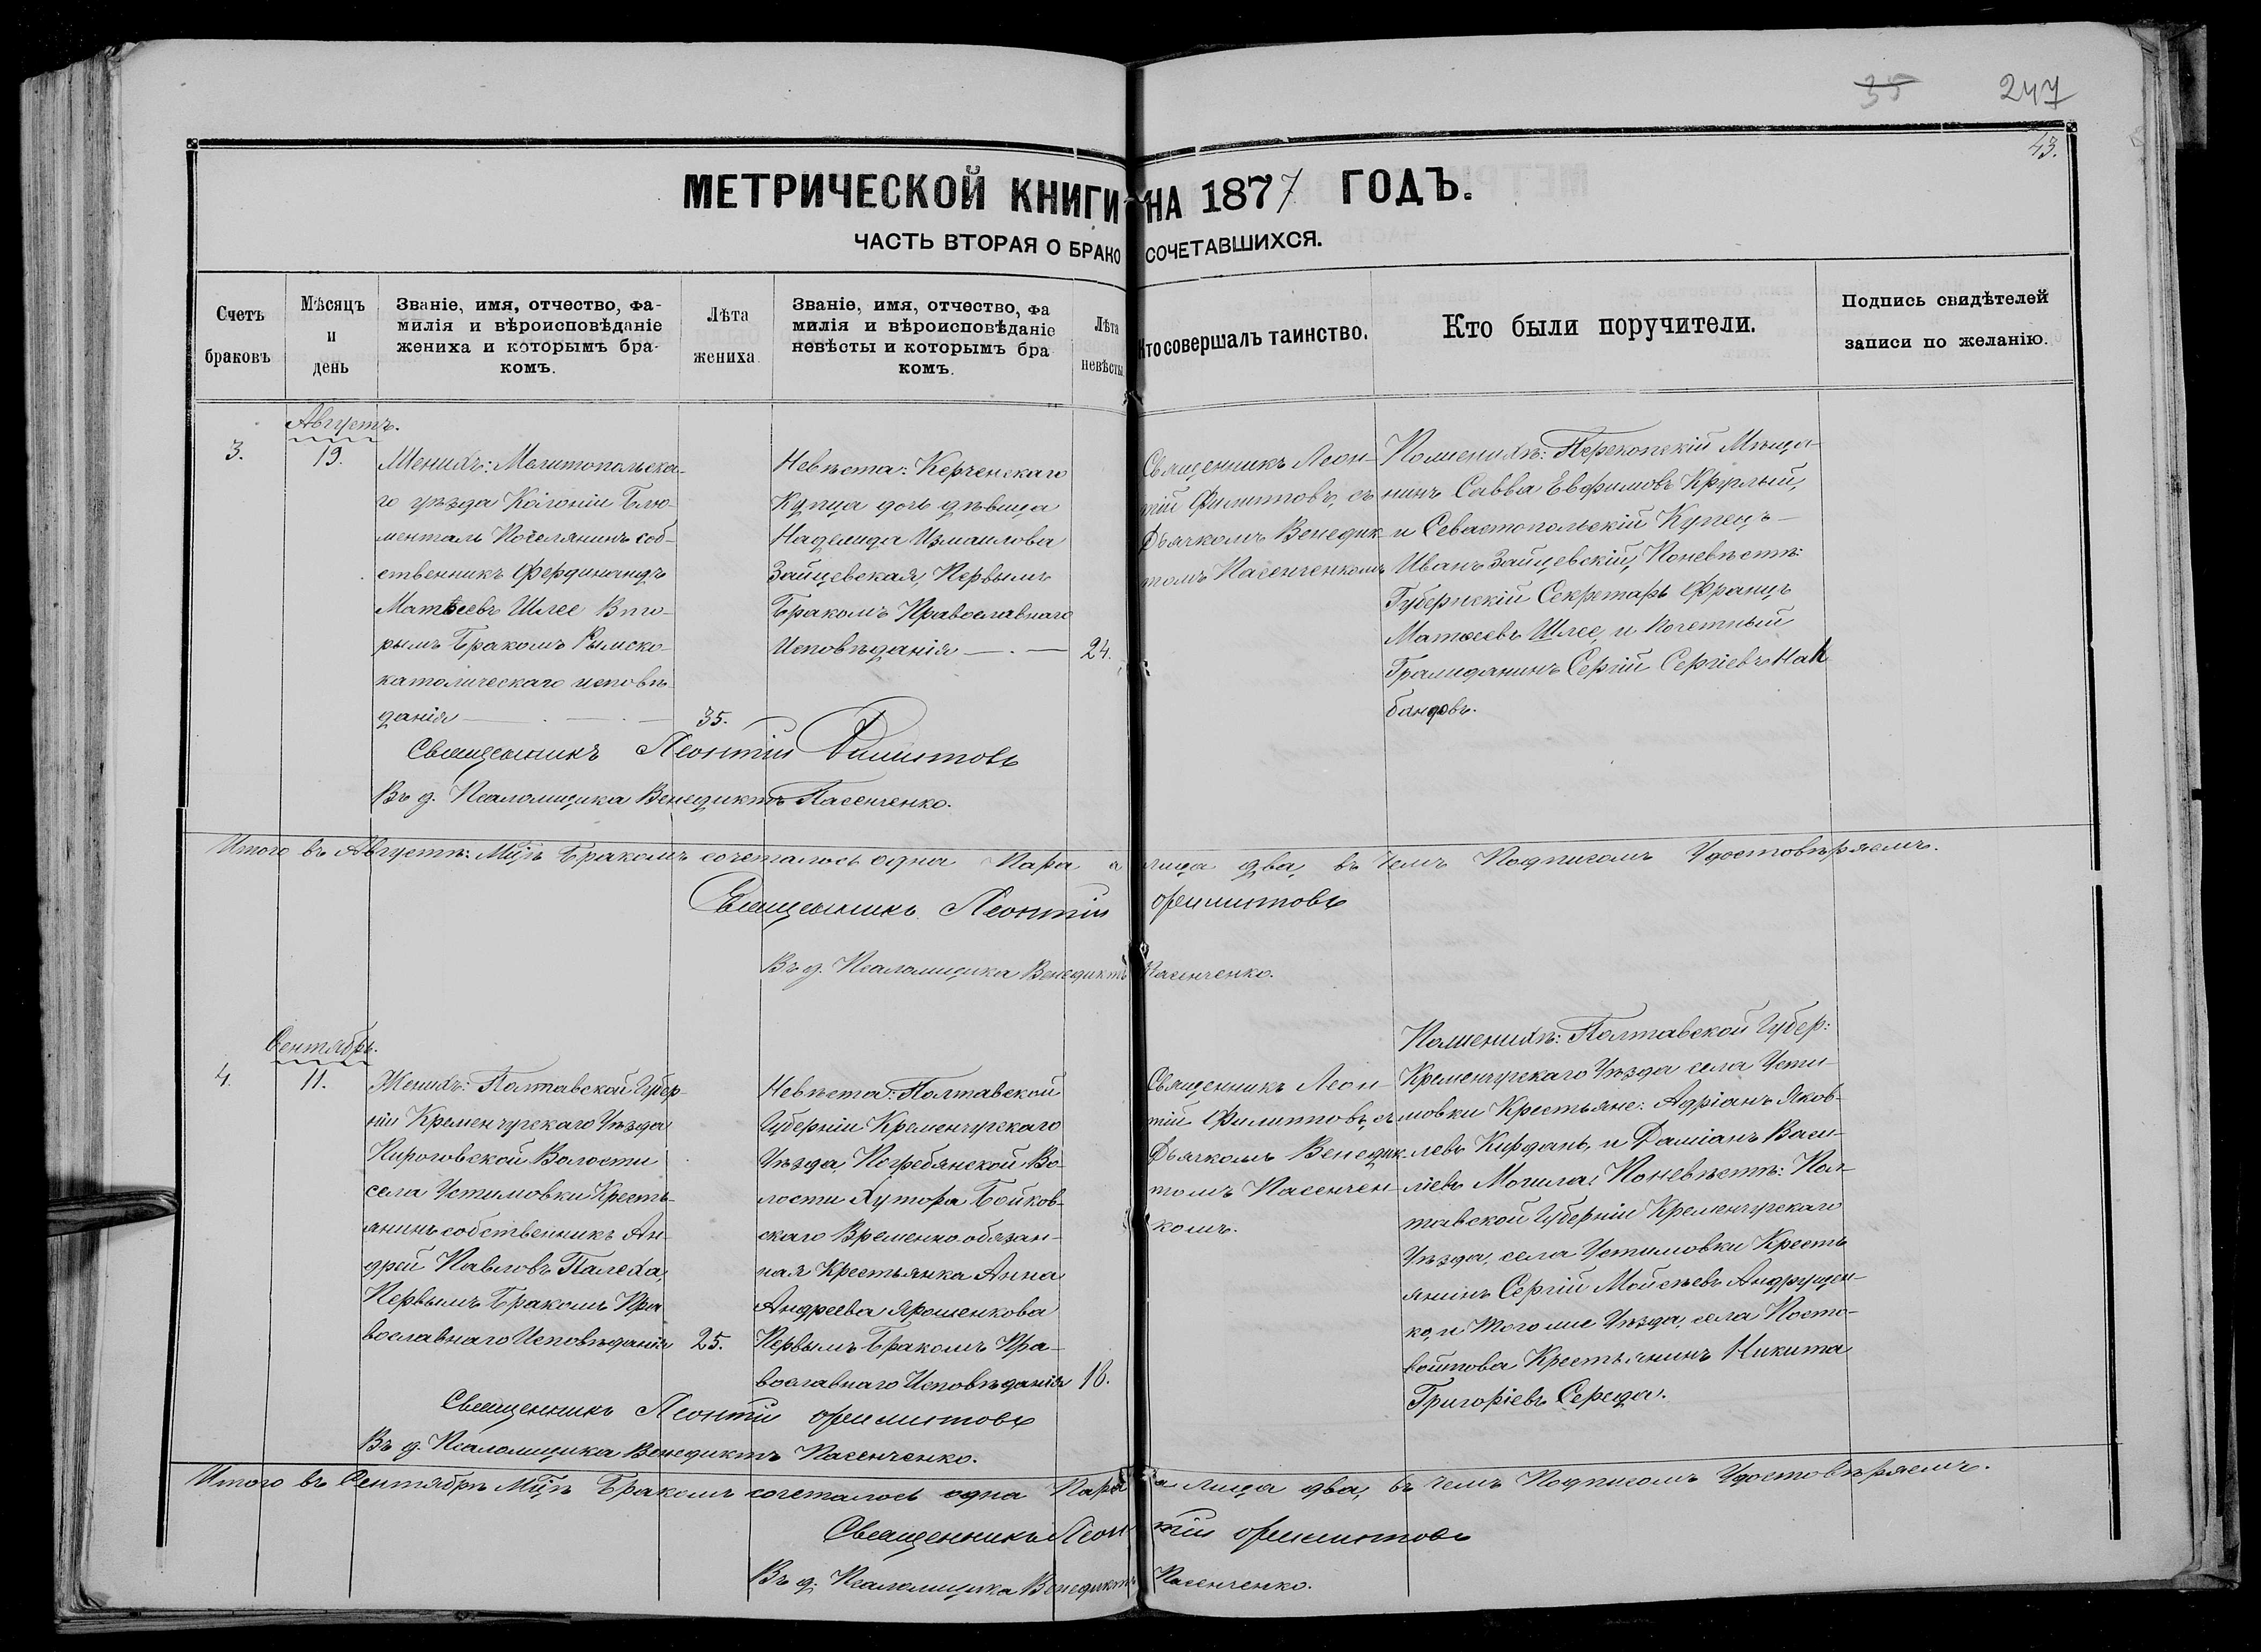 35 247
43.
МЕТРИЧЕСКОЙ КНИГИ НА 1877 ГОДЪ.
ЧАСТЬ ВТОРАЯ О БРАКОСОЧЕТАВШИХСЯ.
Счетъ
браковъ
Мѣсяцъ
и
день
Званіе, имя, отчество, фа-
милія и вѣроисповѣданіе
жениха и которымъ бра-
комъ.
Лѣта
жениха
Званіе, имя, отчество, фа
милія и вѣроисповѣданіе
невѣсты и которымъ бра
комъ.
Лѣта
невѣсты
Кто совершалъ таинство.
Кто были поручители.
Подпись свидѣтелей
записи по желанію.
3.
Августъ.
19.
Женихъ: Мелитопольска-
го уѣзда Колоніи Блю-
менталь Поселянинъ соб-
ственникъ Фердинандъ
Матѳеевъ Шлее Вто-
рымъ Бракомъ Римско
католическаго исповѣ-
данія
35.
Невѣста: Керченскаго
Купца дочь дѣвица
Надежда Измаилова
Зайцевская, Первымъ
Бракомъ Православнаго
Исповѣданія
24.
Священникъ Леон-
тій Филиповъ, съ
Дьячкомъ Венедик-
томъ Пасенченкомъ
Поженихѣ: Перекопскій Мѣща-
нинъ Савва Евфимовъ Круглый,
и Севастопольскій Купецъ
Иванъ Зайцевскій, Поневѣстѣ:
Губернскій Секретарь Францъ
Матѳеевъ Шлее, и Почетный
Гражданинъ Сергій Сергіевъ Нал
бандовъ.
Священникъ Леонтій Филиповъ
Въ д. Псаломщика Венедиктъ Пасенченко.
Итого въ Августѣ: Мцѣ Бракомъ сочеталось одна Пара а лица два, въ чемъ Подписомъ Удостовѣряемъ.
Священникъ Леонтій Филиповъ
Въ д. Псаломщика Венедиктъ Пасенченко.
4.
Сентябрь.
11.
Женихъ: Полтавской Губер-
ніи Кременчугскаго Уѣзда
Пироговской Волости
села Устимовки Кресть-
янинъ собственникъ Ан-
дрей Павловъ Палеха,
Первымъ Бракомъ Пра
вославнаго Исповѣданія
25.
Невѣста: Полтавской
Губерніи Кременчугскаго
Уѣзда, Погребянской Во-
лости Хутора Бойков-
скаго Временно обязан-
ная Крестьянка Анна
Андреева Ярошенкова
Первымъ Бракомъ Пра-
вославнаго Исповѣданія
18.
Священникъ Леон-
тій Филиповъ, съ
Дьячкомъ Венедик-
томъ Пасенчен-
комъ.
Поженихѣ: Полтавской Губер:
Кременчугскаго Уѣзда села Усти-
мовки Крестьяне: Адріанъ Яков-
левъ Кирдань, и Даміанъ Васи-
ліевъ Могила. Поневѣстѣ: Пол-
тавской Губерніи Кременчугскаго
Уѣзда, села Устимовки Кресть
янинъ Сергій Мойсѣевъ Андрущен-
ко, и Того же Уѣзда, села Посто-
войтова Крестьянинъ Никита
Григоріевъ Середа.
Священникъ Леонтій Филиповъ
Въ д. Псаломщика Венедиктъ Пасенченко.
Итого въ Сентябрѣ Мцѣ Бракомъ сочеталось одна Пара а лица два, въ чемъ Подписомъ Удостовѣряемъ.
Священникъ Леонтій Филиповъ
Въ д. Псаломщика Венедиктъ Пасенченко.